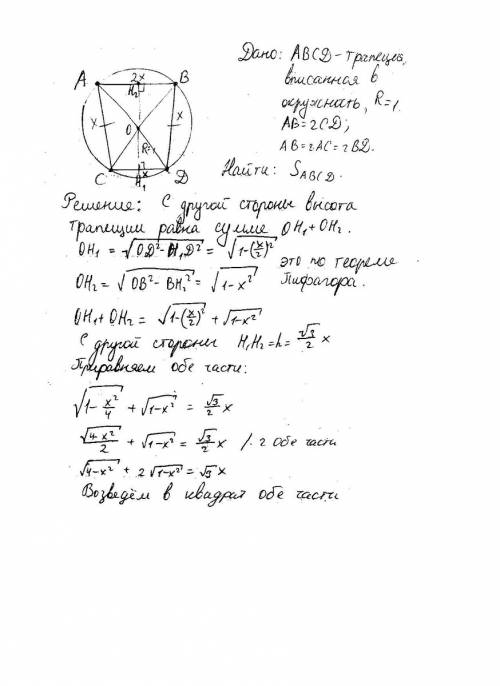 Дано: ABCD - трапеция,
вписанная в
окружность, R=1.
AB=2CD;
AB=2AC=2BD.
Найти: S_ABCD.
A 2x B
H₂
x O x
R=1
C x D
H₁
Решение: С другой стороны высота
трапеции равна сумме OH₁+OH₂.
OH₁ = √(OD²-H₁D²) = √(1-(x/2)²)
OH₂ = √(OB²-BH₂²) = √(1-x²)
это по теореме
Пифагора.
OH₁+OH₂ = √(1-(x/2)²) + √(1-x²)
С другой стороны H₁H₂=h= √3/2 x
Приравняем обе части:
√(1-x²/4) + √(1-x²) = √3/2 x
√(4-x²)/2 + √(1-x²) = √3/2 x /·2 обе части
√(4-x²) + 2√(1-x²) = √3 x
Возведём в квадрат обе части